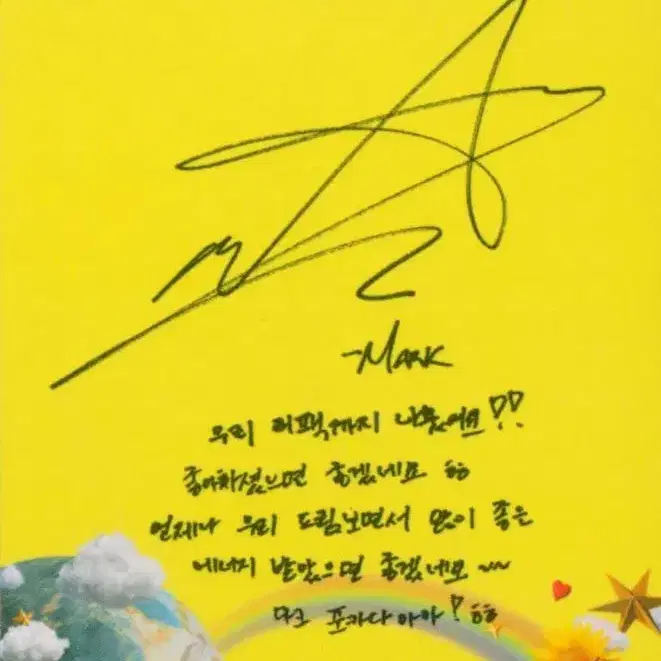 -MARK
우리 리팩까지 나왔어요!!
좋아하셨으면 좋겠네요 ㅎㅎ
언제나 우리 드림보면서 많이 좋은
에너지 받았으면 좋겠네요~~
마크 포카다아아! ㅎㅎ